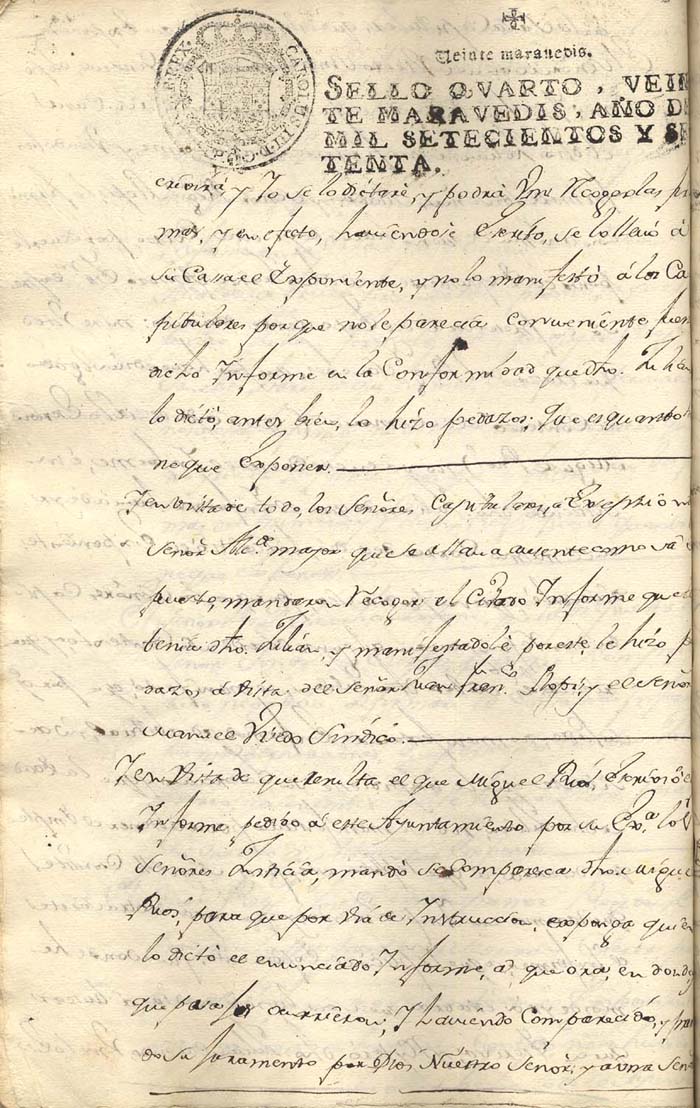 CAROLUS III D. G. REX
Veinte maravedis.
SELLO QVARTO, VEIN
TE MARAVEDIS, AÑO DE
MIL SETECIENTOS Y SE
TENTA.
y Yo se lo dictare, y podrá Vm Recoger las fir
mas, y en efecto, haviendose Escrito, se lo llevó á
su Cassa el Exponiente, y no lo manifestó á los Ca
pitulares por que no le parecia conveniente
dicho Informe en la Conformidad que dho.
lo dictó, antes bien, lo hizo pedazos; Que es quanto
ne que Exponer.
Y en vista de todo, los Señores Capitulares, a Excepcion
Señor Alc.e mayor que se allava ausente como
puesto, mandaron Recoger el Citado Informe que
tenia dho. Julian y manifestadole por este, le hizo pe
dazos á vista del Señor Juan Fran.co y el Señor
Manuel Sindico.
Y en Vista de que resulta el que Miguel Rios, Escrivió el
Informe, pedido á este Ayuntamiento por su Ex.a los
Señores Justicia, mandó se Comparesca dho. Migue
Rios, para que por via de Instruccion, exponga quien
lo dictó el enunciado Informe, á que ora, en donde,
que Y haviendo Comparecido, y
do su Juramento por Dios Nuestro Señor, y á una Señ